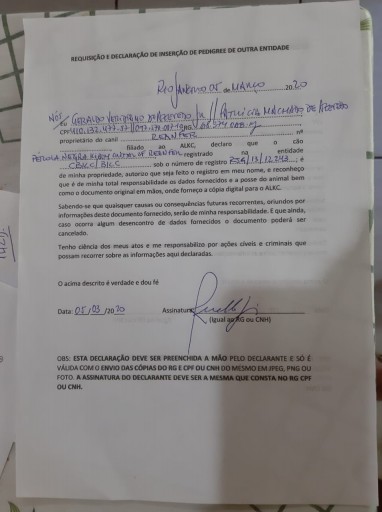 REQUISIÇÃO E DECLARAÇÃO DE INSERÇÃO DE PEDIGREE DE OUTRA ENTIDADE
Rio Janeiro 05 de MARÇO 2020
NÓS
Eu GERALDO
CPF
proprietário do canil REANFER nº
filiado ao ALKC, declaro que o cão
PÉROLA NEGRA registrado na entidade
CBKC/ sob o número de registro ; e
de minha propriedade, autorizo que seja feito o registro em meu nome, e reconheço
que é de minha total responsabilidade os dados fornecidos e a posse do animal bem
como o documento original em mãos, onde forneço a cópia digital para o ALKC.
Sabendo-se que quaisquer causas ou consequências futuras recorrentes, oriundos por
informações deste documento fornecido, serão de minha responsabilidade. E que ainda,
caso ocorra algum desencontro de dados fornecidos o documento poderá ser
cancelado.
Tenho ciência dos meus atos e me responsabilizo por ações cíveis e criminais que
possam recorrer sobre as informações aqui declaradas.
O acima descrito é verdade e dou fé
Data: 05/03/2020 Assinatura
(Igual ao RG ou CNH)
OBS: ESTA DECLARAÇÃO DEVE SER PREENCHIDA A MÃO PELO DECLARANTE E SÓ É
VÁLIDA COM O ENVIO DAS CÓPIAS DO RG E CPF OU CNH DO MESMO EM JPEG, PNG OU
FOTO. A ASSINATURA DO DECLARANTE DEVE SER A MESMA QUE CONSTA NO RG CPF
OU CNH.